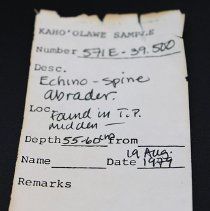 KAHO'OLAWE SAMPLE
Number 571E-39.500
Desc.
Echino-Spine
Abrader.
Loc. Found in T.P.
midden -
Depth 55-60cm
19 Aug.
Name Date 1979
Remarks